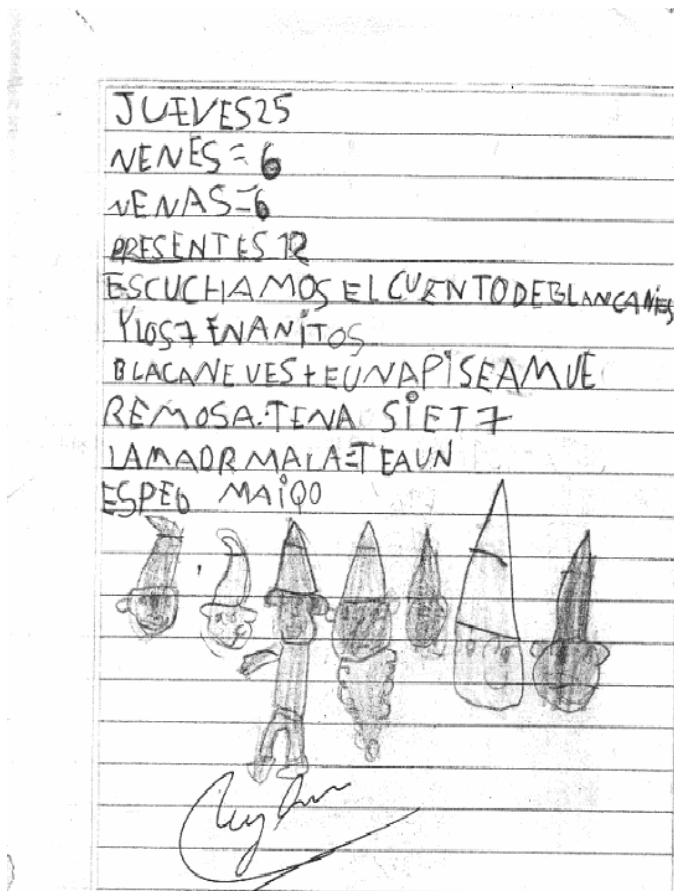 JUEVES25
NENES=6
NENAS=6
PRESENTES 12
ESCUCHAMOS EL CUENTODEBLANCANIES
YLOS7 ENANITOS
BLACANEVES+EUNAPISEAMUE
REMOSA.TENA SIET7
LAMADRMALA=TEAUN
ESPEO MAIQO